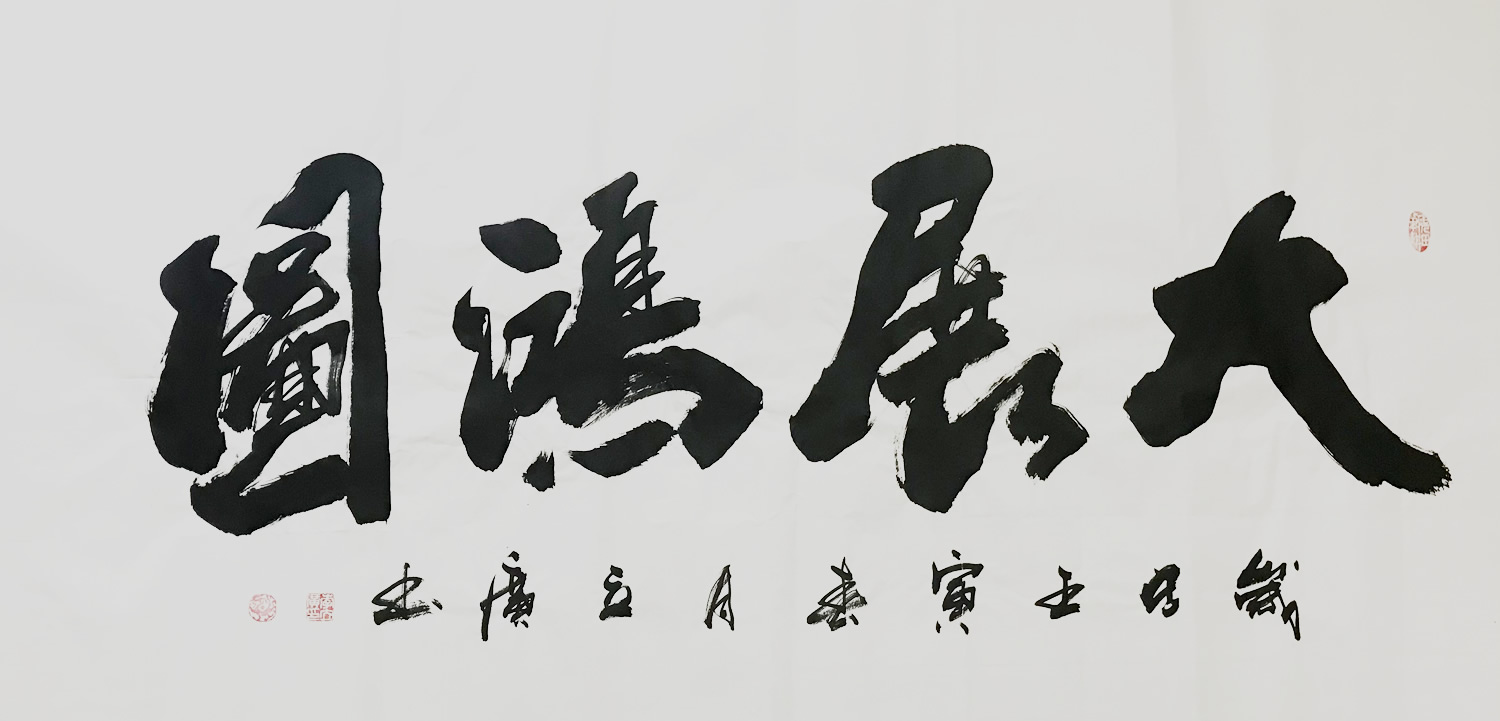 大展鴻圖
歲次壬寅春月立廣書